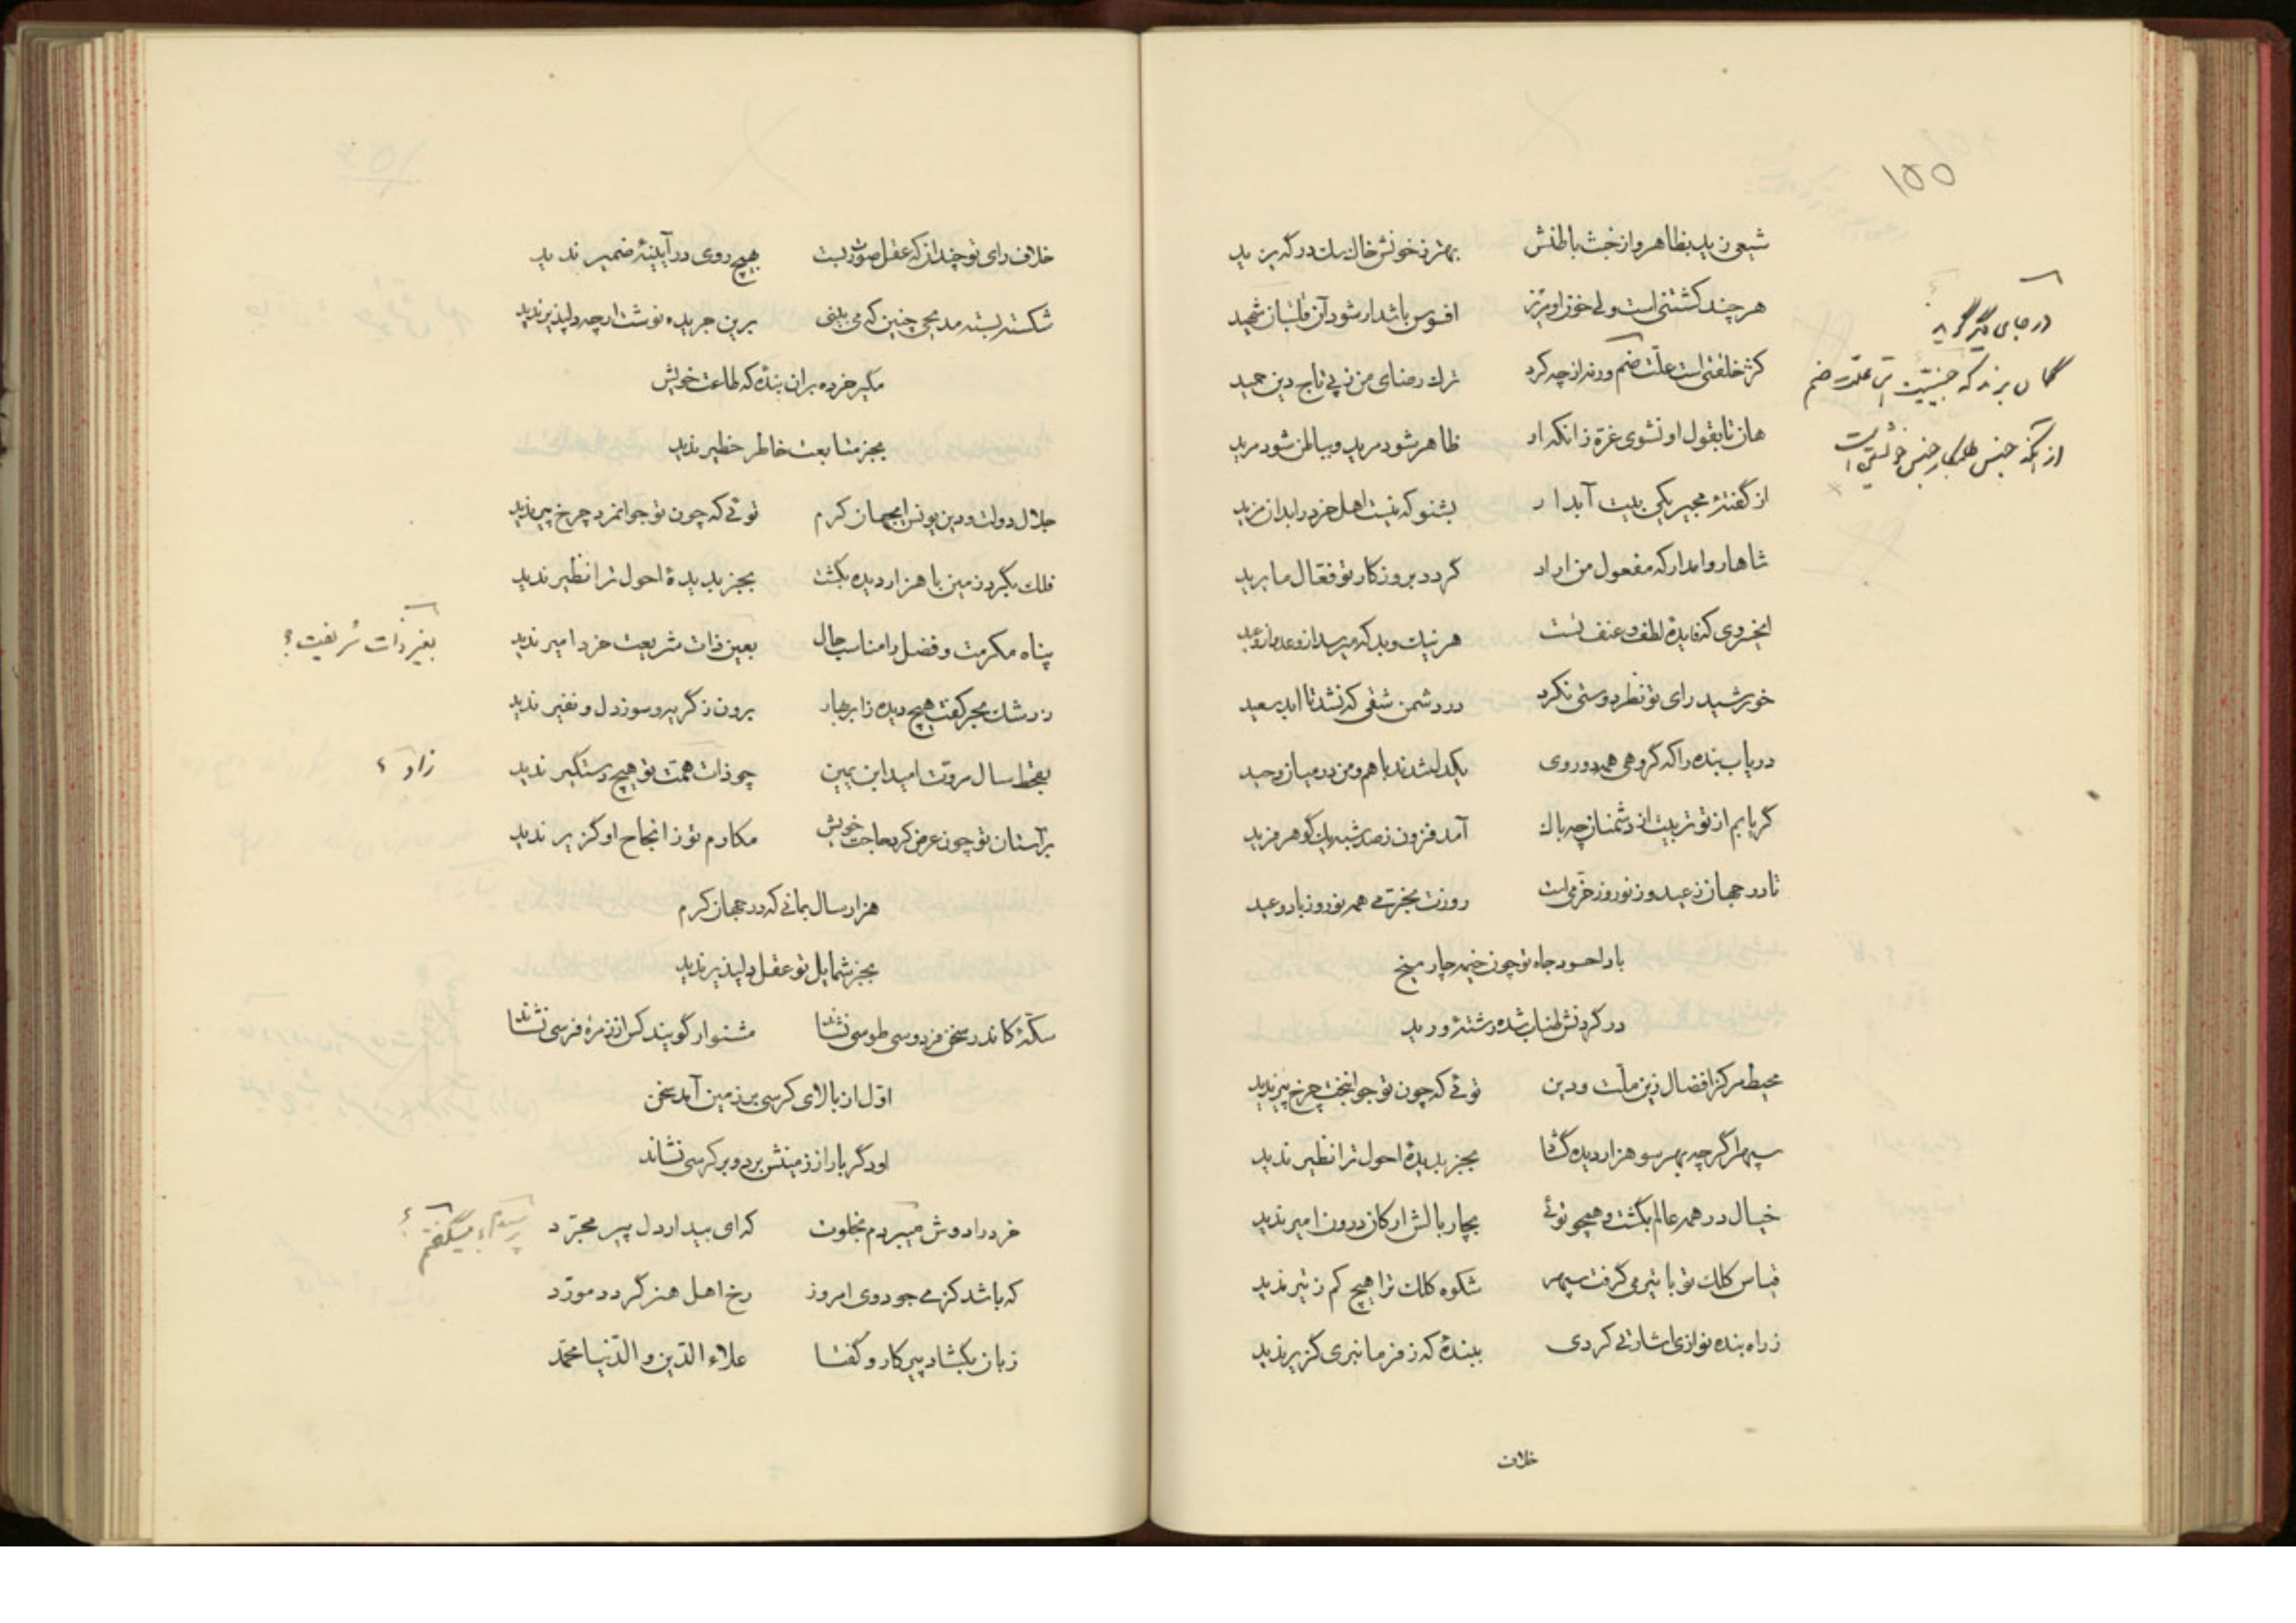 ۱۵۵
شیعی زید بظاهر و از خبث باطنش بهتر ز خونش خاک سک در که یزید
هر چند کشتنی است ولی خون او مریز افسوس باشد ار شود آن قلتبان شهید
کژ خلقتی است علت ضم ورنه از چه کرد ترک رضای من ز پی تاج دین حمید
هان تا بقول او نشوی غره زانکه او ظاهر شود مرید و بباطن شود مرید
از گفتهٔ مجیر یکی بیت آبدار بشنو که نیست اهل خرد را بدان مزید
شاها روا مدار که مفعول من اراد گردد بروزکار تو فعال ما یرید
ایخسروی که فایدهٔ لطف و عنف تست هر نیک و بد که میرسد از وعد و از وعید
خورشید رای تو نظر دوستی نکرد در دشمن شقی که نشد تا ابد سعید
دریاب بنده را که گروهی همه دوروی یکدل شدند باهم و من در میان وحید
گر یابم از تو تربیت از دشمنان چه باک آمد فزون ز صد شبه یک گوهر فرید
تا در جهان ز عید و ز نوروز خرمی است روزت بخرمی همه نوروز باد و عید
بادا حسود جاه تو چون خیمه چار میخ
در گردنش طناب شده رشتهٔ ورید
محیط مرکز افضال زین ملت و دین توئی که چون تو جوانبخت چرخ پیر ندید
سپهر اگرچه بهر سو هزار دیده گشا بجز بدیدهٔ احول ترا نظیر ندید
خیال در همه عالم بگشت و همچو توئی بچار بالش ارکان درون امیر ندید
قیاس کلک تو با تیر می گرفت سپهر شکوه کلک ترا هیچ کم ز تیر ندید
ز راه بنده نوازی اشارتی کردی ببندهٔ که ز فرمانبری گزیر ندید
خلاف
در جای دیگر گوید
گمان برند که جنسیت علت ضم
از آنکه جنس طلبکار جنس خویشتن است
خلاف رای تو چندانکه عقل صورت بست بهیچ روی در آیینهٔ ضمیر ندید
شکسته بسته مدیحی چنین که می بینی برین جریده نوشت ارچه دلپذیر ندید
مگیر خرده بران بنده که طاعت خویش
بجز متابعت خاطر خطیر ندید
جلال دولت و دین یونس ایجهان کرم توئی که چون تو جوانمرد چرخ پیر ندید
فلک بگرد زمین با هزار دیده بگشت بجز بدیدهٔ احول ترا نظیر ندید
پناه مکرمت و فضل را مناسب حال بعین ذات شریعت خرد امیر ندید
بغیر ذات شریفت ؟
ز رشک بحر کفت هیچ دیده ز ابر بهار برون ز گریه و سوز دل و نفیر ندید
بقحط سال مروت امید ابن یمین چو ذات همت تو هیچ دستگیر ندید
زاد ؟
بر آستان تو چون عرض کرد حاجت خویش مکارم تو ز انجاح او گزیر ندید
هزار سال بمانی که در جهان کرم
بجز شمایل تو عقل دلپذیر ندید
سکهٔ کاندر سخن فردوسی طوسی نشاند مشنو ار گویند کس از زمرهٔ فرسی نشاند
اول از بالای کرسی بر زمین آمد سخن
او دگر بار از زمینش برد و بر کرسی نشاند
خرد را دوش میبردم بخلوت که ای بیدار دل پیر مجرد
میگفتم ؟
که باشد کز می جود وی امروز رخ اهل هنر گردد مورد
زبان بگشاد پیر کار و گفتا علاء الدین و الدنیا محمد